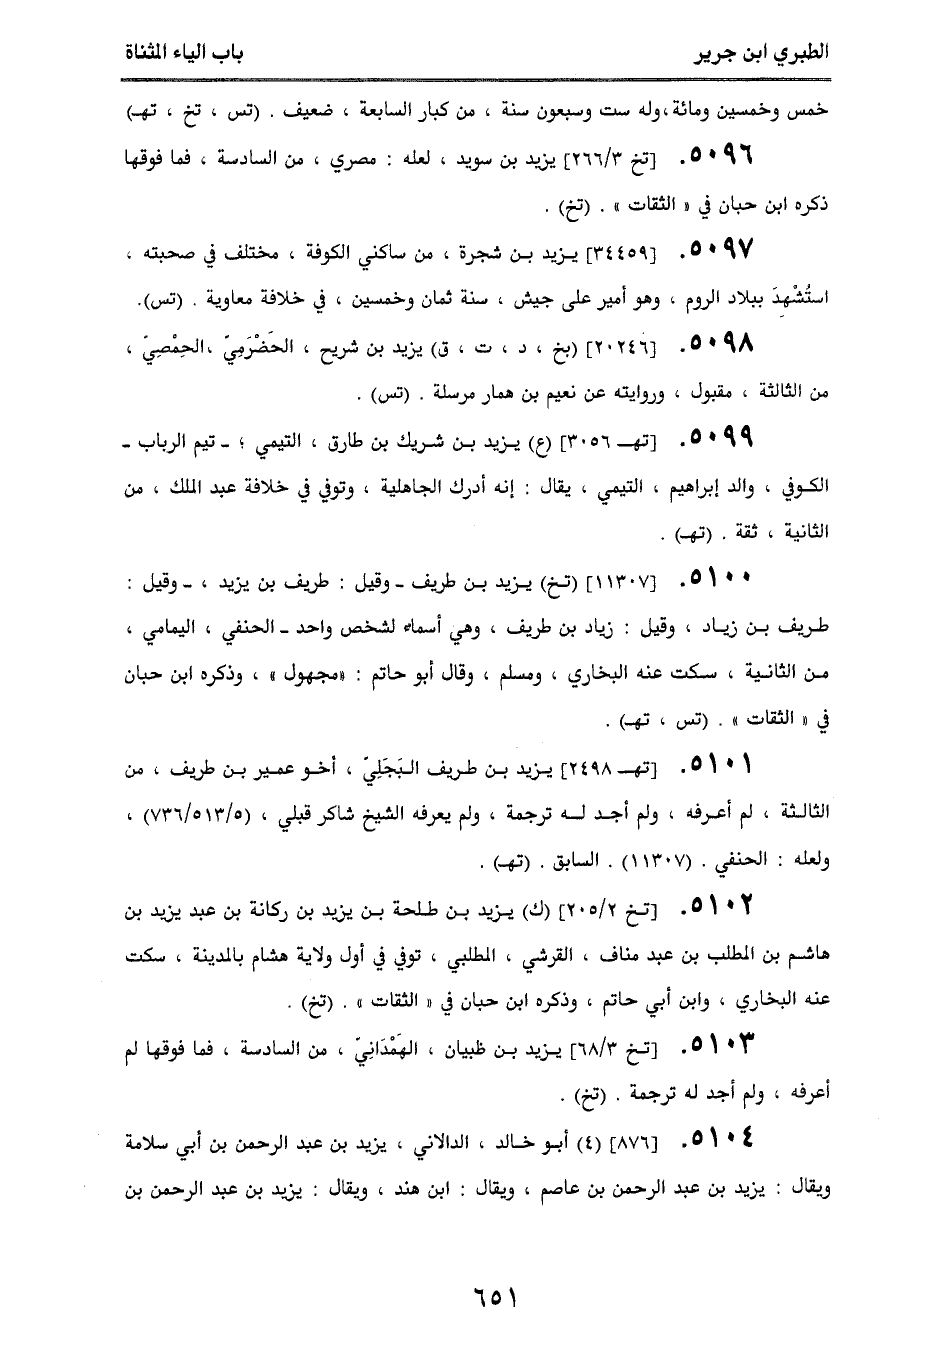 الطبري ابن جرير
باب الياء المثناة
خمس وخمسين ومائة ، وله ست وسبعون سنة ، من كبار السابعة ، ضعيف . (تس ، تخ ، تهـ)
٥٠٩٦. [تخ ٢٦٦/٣] يزيد بن سويد ، لعله : مصري ، من السادسة ، فما فوقها
ذكره ابن حبان في « الثقات » . (تخ) .
٥٠٩٧. [٣٤٤٥٩] يزيد بن شجرة ، من ساكني الكوفة ، مختلف في صحبته ،
استُشْهِدَ ببلاد الروم ، وهو أمير على جيش ، سنة ثمان وخمسين ، في خلافة معاوية . (تس).
٥٠٩٨. [٢٠٢٤٦] (بخ ، د ، ت ، ق) يزيد بن شريح ، الحَضْرَمِيّ ، الحِمْصِيّ ،
من الثالثة ، مقبول ، وروايته عن نعيم بن همار مرسلة . (تس) .
٥٠٩٩. [تهـ ٣٠٥٦] (ع) يزيد بن شريك بن طارق ، التيمي ؛ ـ تيم الرباب ـ
الكوفي ، والد إبراهيم ، التيمي ، يقال : إنه أدرك الجاهلية ، وتوفي في خلافة عبد الملك ، من
الثانية ، ثقة . (تهـ) .
٥١٠٠. [١١٣٠٧] (تخ) يزيد بن طريف ـ وقيل : طريف بن يزيد ، ـ وقيل :
طريف بن زياد ، وقيل : زياد بن طريف ، وهي أسماء لشخص واحد ـ الحنفي ، اليمامي ،
من الثانية ، سكت عنه البخاري ، ومسلم ، وقال أبو حاتم : «مجهول » ، وذكره ابن حبان
في « الثقات » . (تس ، تهـ) .
٥١٠١. [تهـ ٢٤٩٨] يزيد بن طريف البَجَلِيّ ، أخو عمير بن طريف ، من
الثالثة ، لم أعرفه ، ولم أجد له ترجمة ، ولم يعرفه الشيخ شاكر قبلي ، (٧٣٦/٥١٣/٥) ،
ولعله : الحنفي . (١١٣٠٧) . السابق . (تهـ) .
٥١٠٢. [تخ ٢٠٥/٢] (ك) يزيد بن طلحة بن يزيد بن ركانة بن عبد يزيد بن
هاشم بن المطلب بن عبد مناف ، القرشي ، المطلبي ، توفي في أول ولاية هشام بالمدينة ، سكت
عنه البخاري ، وابن أبي حاتم ، وذكره ابن حبان في « الثقات » . (تخ) .
٥١٠٣. [تخ ٦٨/٣] يزيد بن ظبيان ، الهَمْدَانِيّ ، من السادسة ، فما فوقها لم
أعرفه ، ولم أجد له ترجمة . (تخ) .
٥١٠٤. [٨٧٦] (٤) أبو خالد ، الدالاني ، يزيد بن عبد الرحمن بن أبي سلامة
ويقال : يزيد بن عبد الرحمن بن عاصم ، ويقال : ابن هند ، ويقال : يزيد بن عبد الرحمن بن
٦٥١